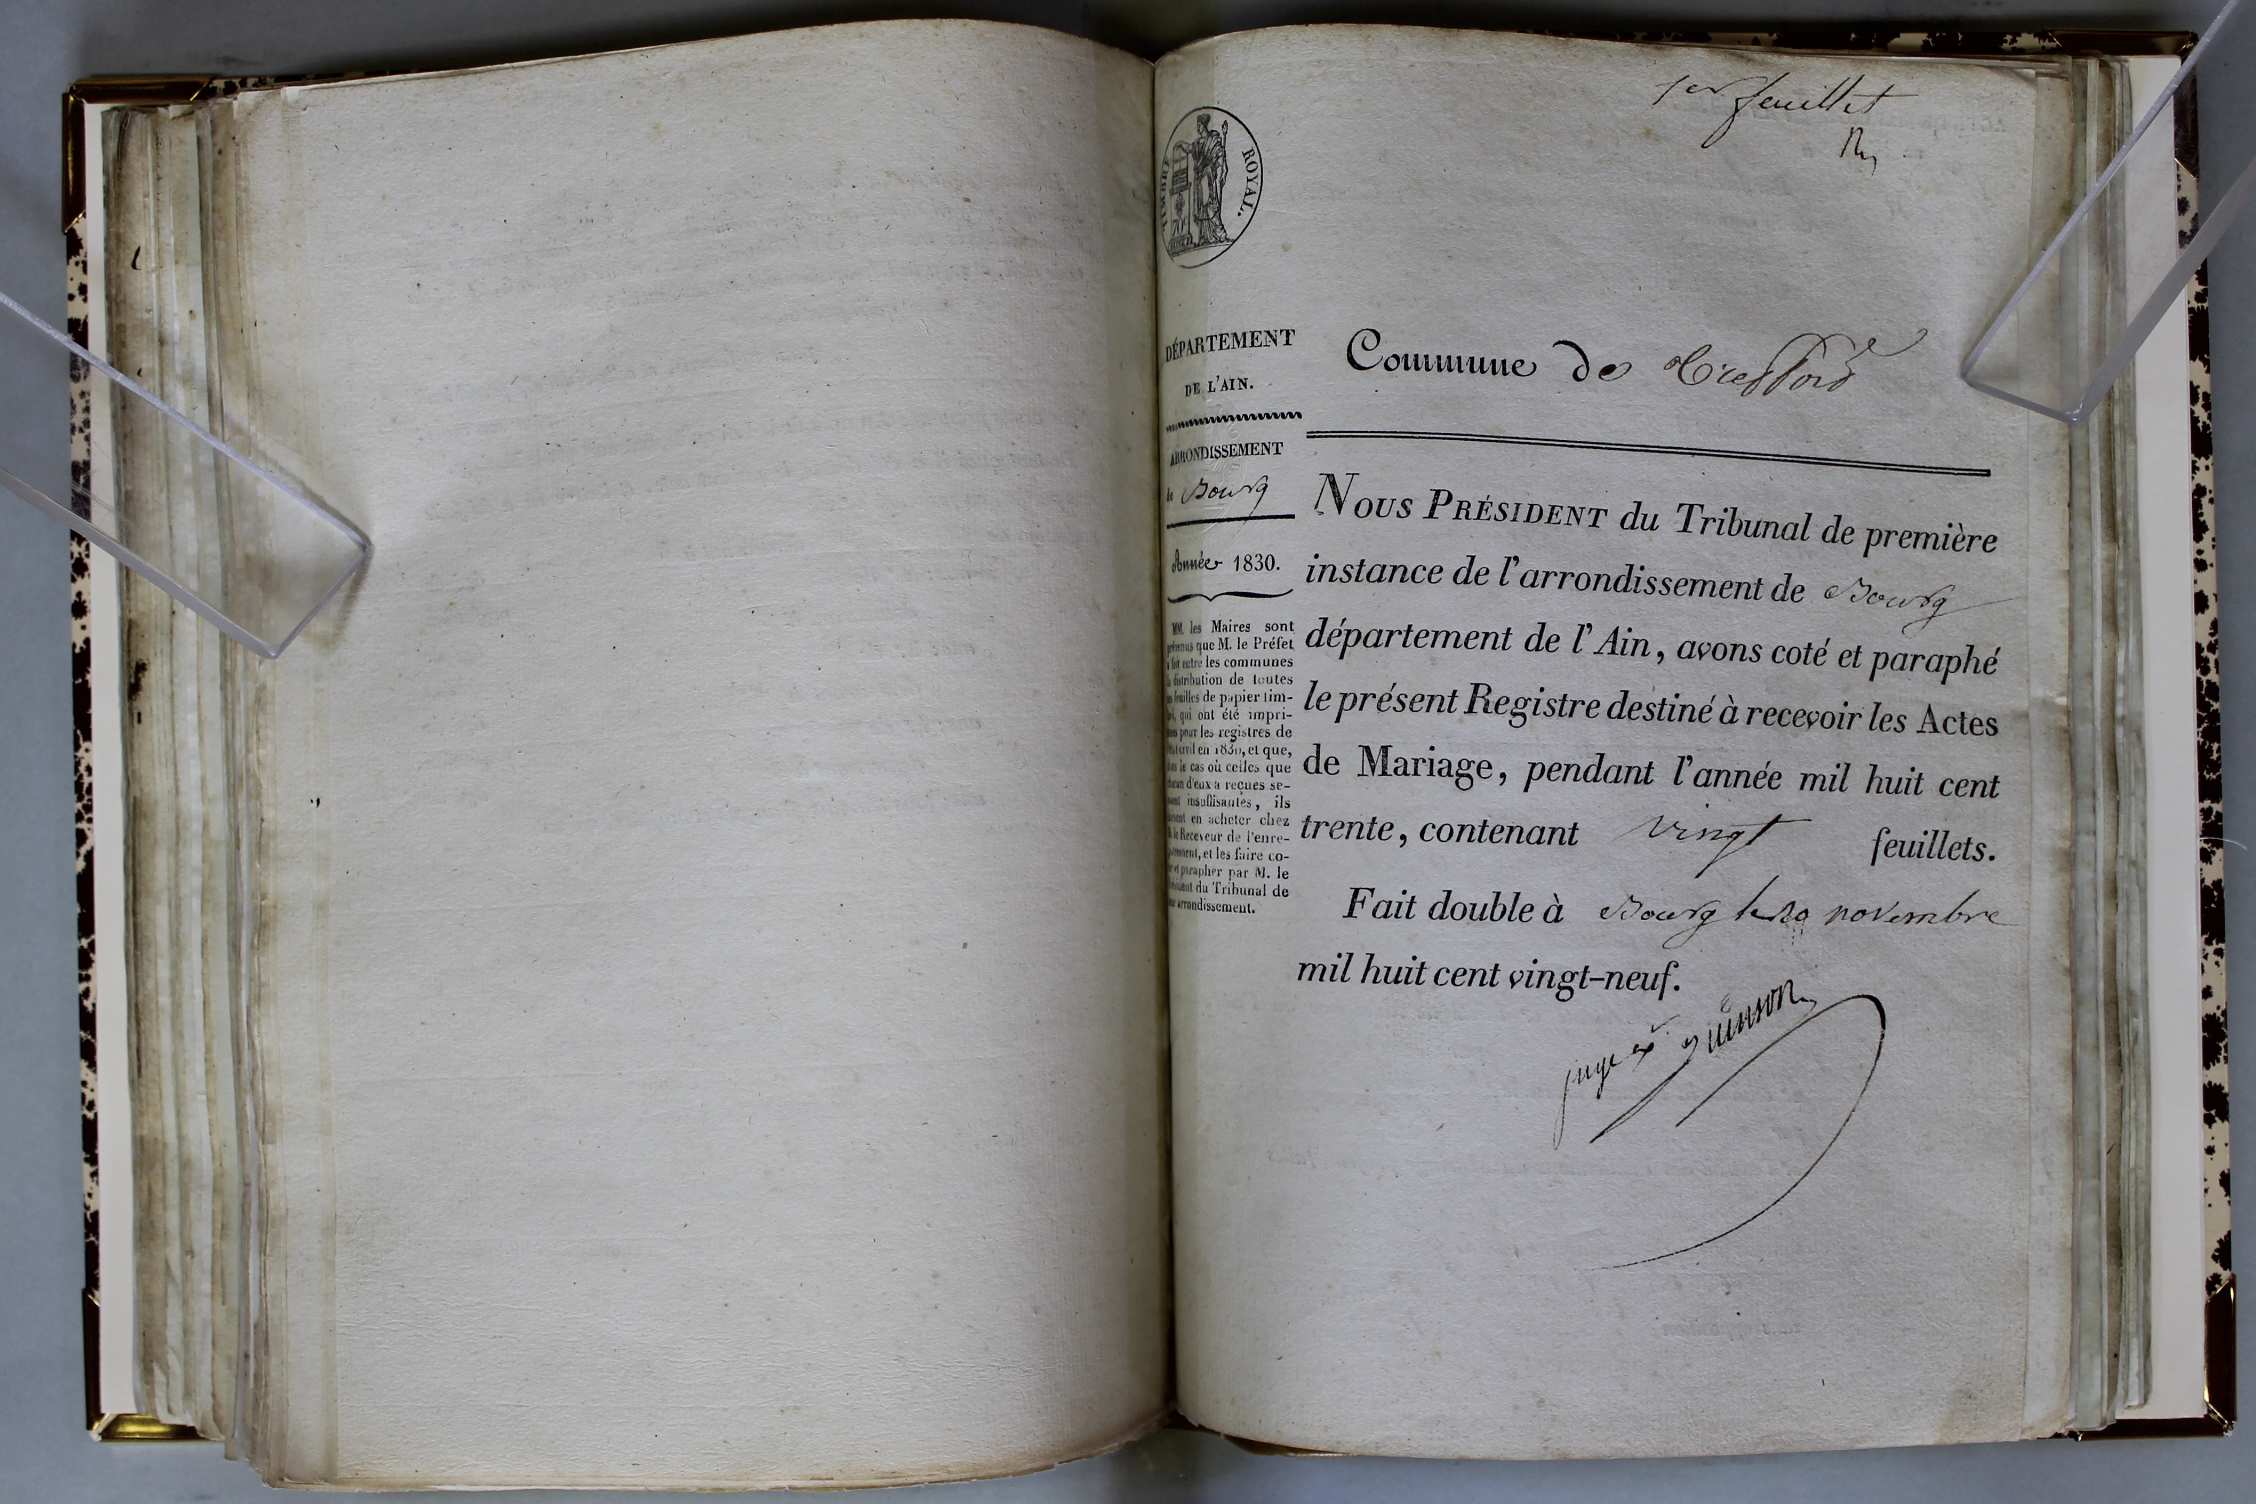 1er feuillet
TIMBRE ROYAL.
DÉPARTEMENT
DE L'AIN.
ARRONDISSEMENT
de Bourg
Année 1830.
MM. les Maires sont
prévenus que M. le Préfet
a fait entre les communes
la distribution de toutes
les feuilles de papier tim-
bré, qui ont été impri-
mées pour les registres de
l'état civil en 1830, et que,
dans le cas où celles que
chacun d'eux a reçues se-
raient insuffisantes, ils
en acheter chez
M. le Receveur de l'enre-
gistrement, et les faire co-
ter et parapher par M. le
Président du Tribunal de
leur arrondissement.
Commune de Treffort
NOUS PRÉSIDENT du Tribunal de première
instance de l'arrondissement de Bourg
département de l'Ain, avons coté et paraphé
le présent Registre destiné à recevoir les Actes
de Mariage, pendant l'année mil huit cent
trente, contenant vingt feuillets.
Fait double à Bourg le novembre
mil huit cent vingt-neuf.
juge